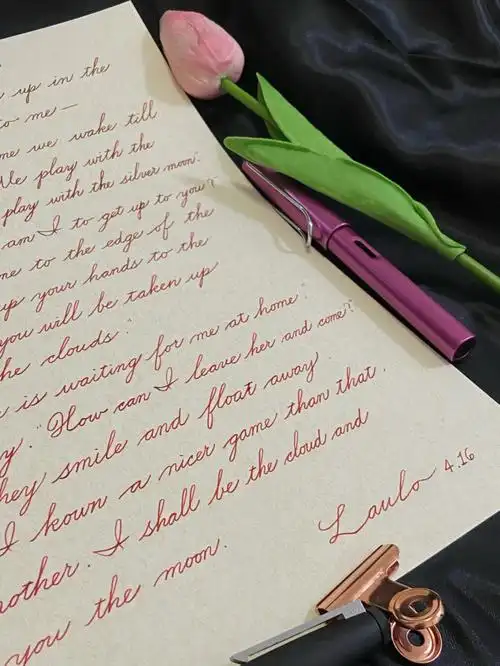 up in the
to me —
me we wake till
We play with the
play with the silver moon."
am I to get up to you?"
me to the edge of the
up your hands to the
you will be taken up
the clouds."
is waiting for me at home.
"How can I leave her and come?"
they smile and float away
I kown a nicer game than that,
mother. I shall be the cloud and
you the moon.
Laulo 4.16